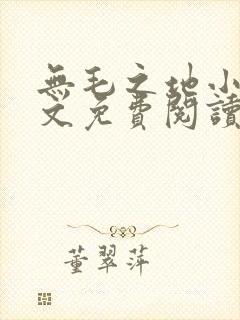 無毛之地小
文免費閱讀
董翠萍